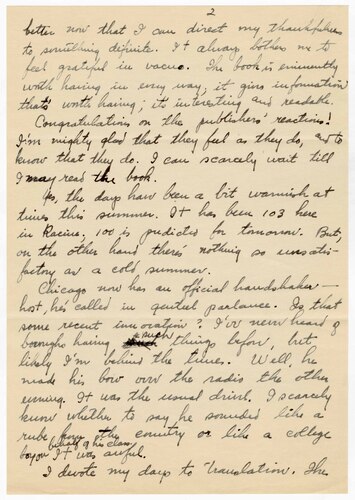 2
better now that I can direct my thankfulness
to something definite. It always bothers me to
feel grateful in vacuo. The book is eminently
worth having in every way; it gives information
that's worth having; it interesting and readable.
Congratulations on the publishers' reactions!
I'm mighty glad that they feel as they do, and to
know that they do. I can scarcely wait till
I may read the book.
Yes, the days have been a bit warmish at
times this summer. It has been 103 here
in Racine; 100 is predicted for tomorrow. But,
on the other hand there's nothing so unsatis-
factory as a cold summer.
Chicago now has an official handshaker —
host, he's called in quoted parlance. Is that
some recent innovation? I've never heard of
boroughs having such things before, but
likely I'm behind the times. Well, he
made his bow over the radio the other
evening. It was the usual drivel. I scarcely
know whether to say he sounded like a
rube from the country or like a college
boy on his class. It was awful.
I devote my days to translation. The